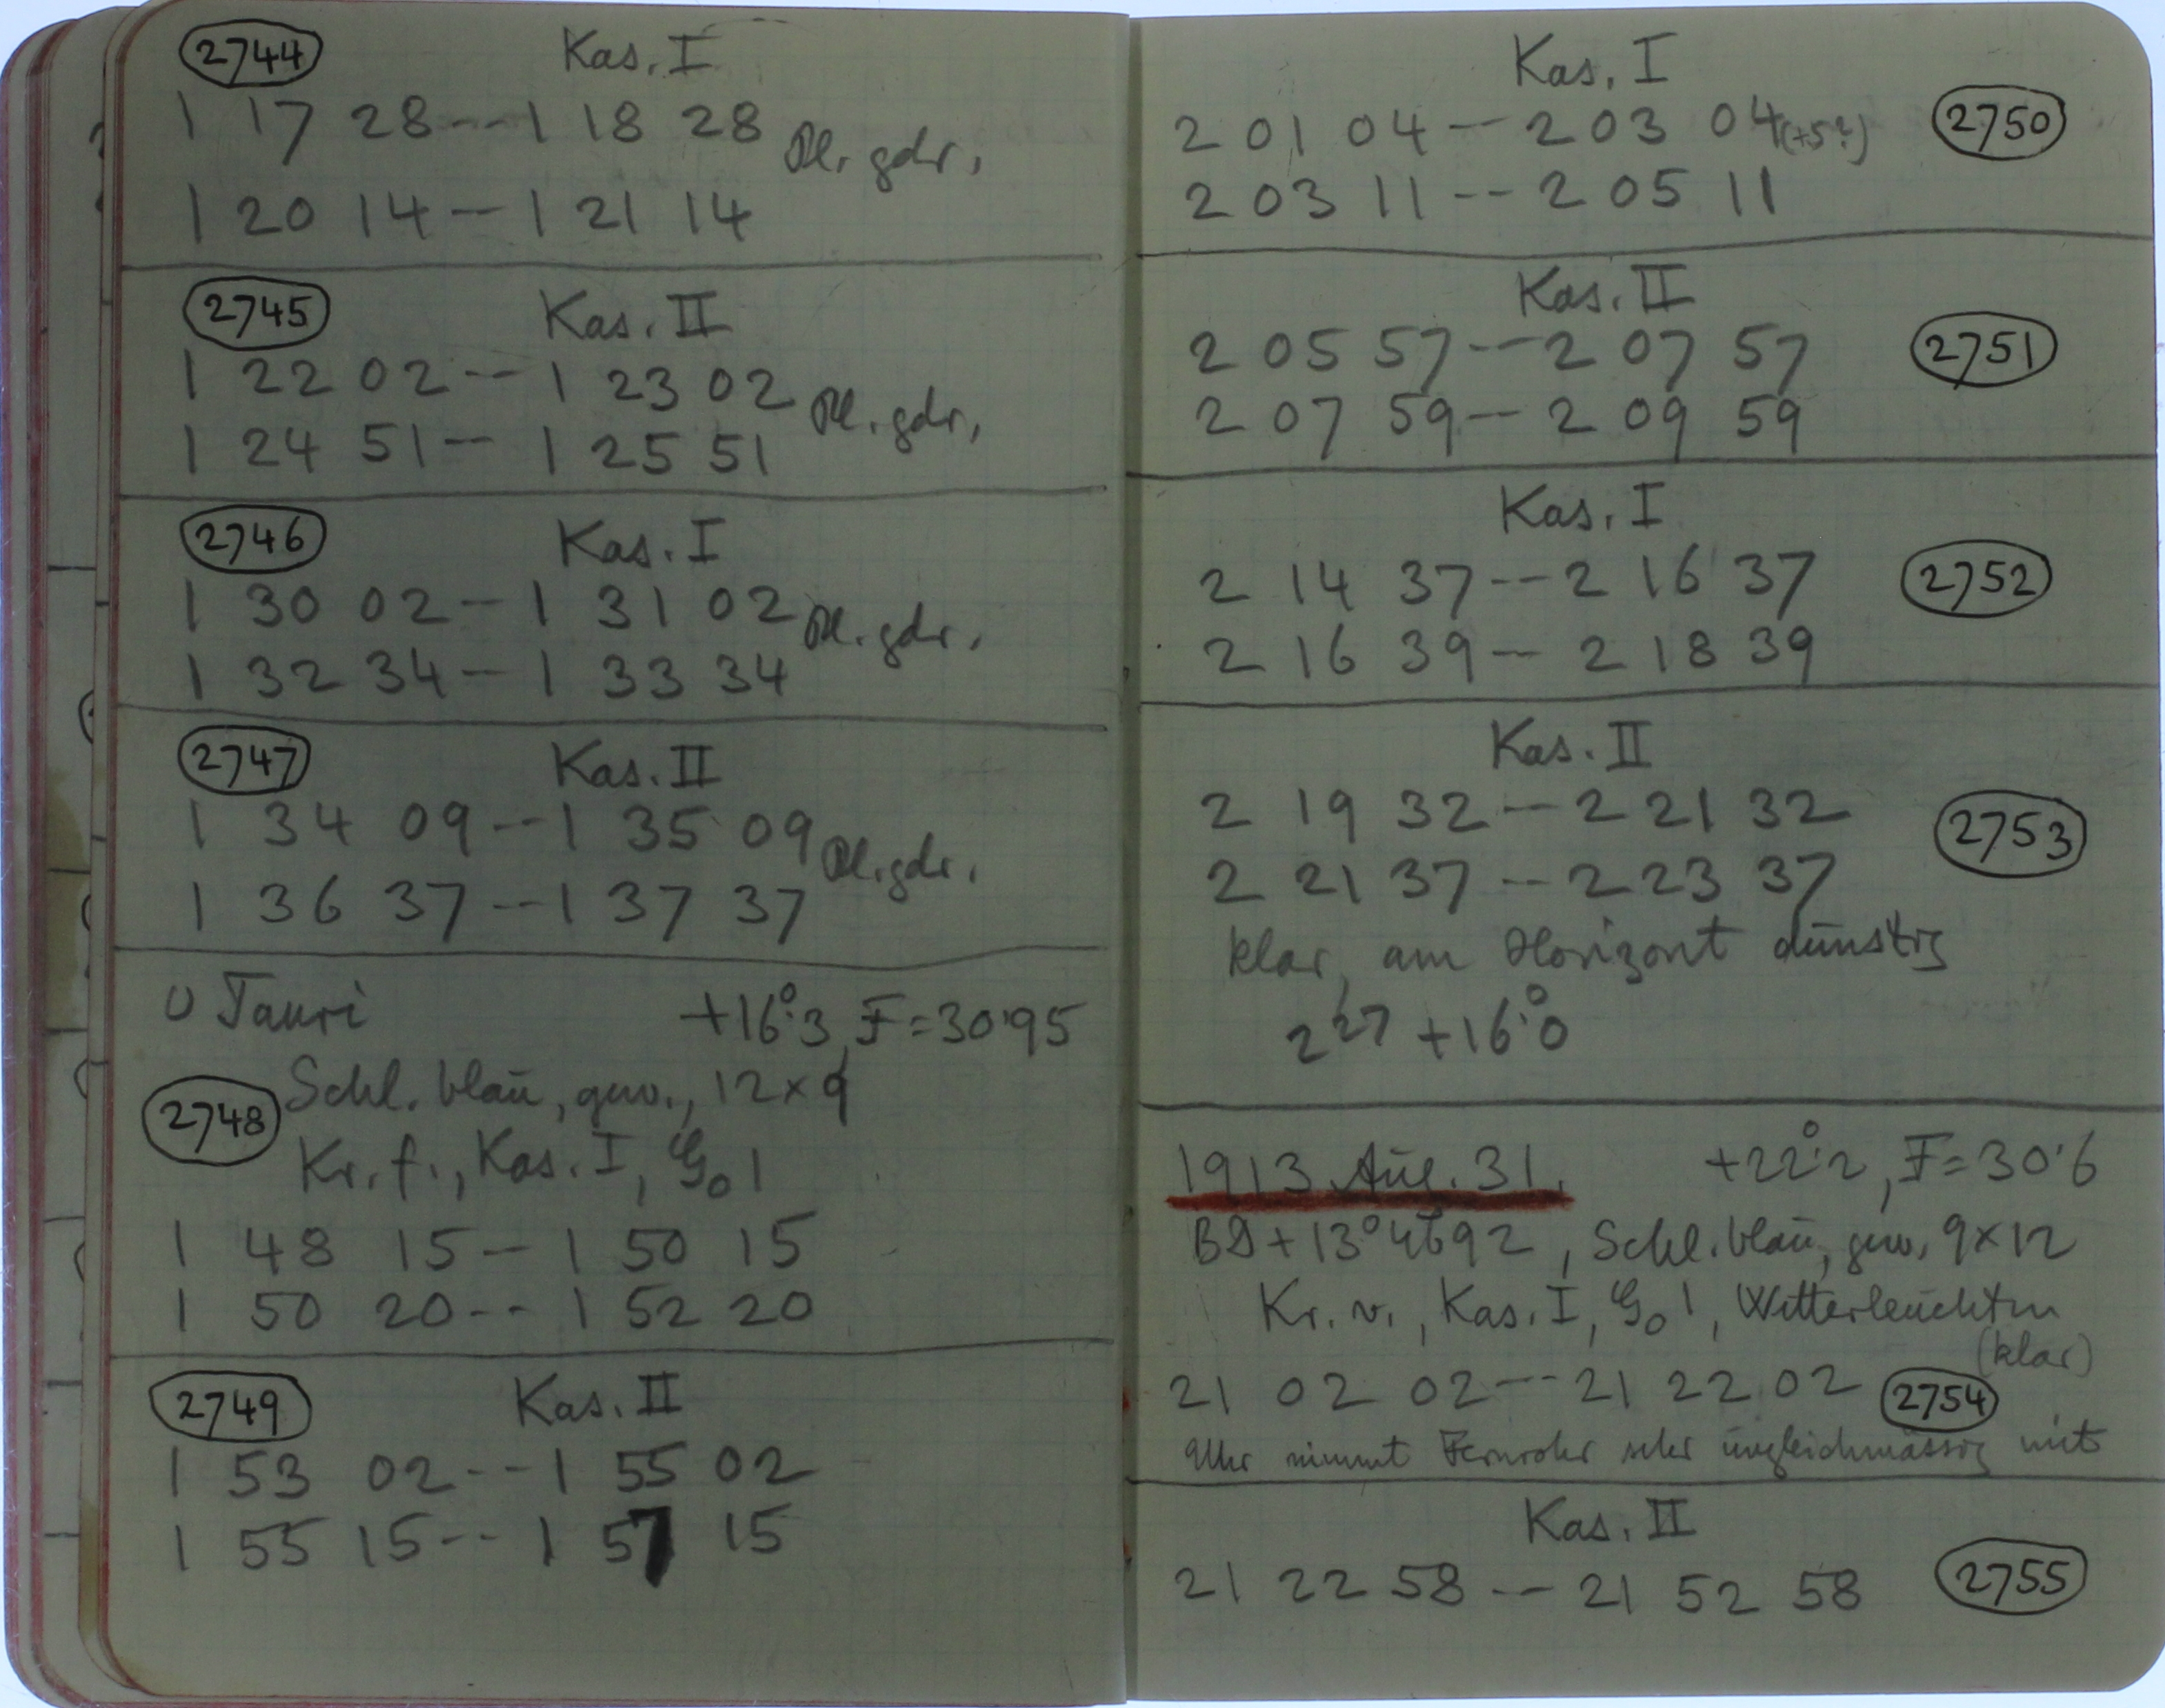 2744 Kas. I
1 17 28 -- 1 18 28 Pl. gdr.
1 20 14 -- 1 21 14
2745 Kas. II
1 22 02 -- 1 23 02 Pl. gdr.
1 24 51 -- 1 25 51
2746 Kas. I
1 30 02 -- 1 31 02 Pl. gdr.
1 32 34 -- 1 33 34
2747 Kas. II
1 34 09 -- 1 35 09 Pl. gdr.
1 36 37 -- 1 37 37
υ Tauri +16°.3, F=30.95
2748 Schl. blau, gew., 12×9
Kr. f., Kas. I, G₀ 1
1 48 15 -- 1 50 15
1 50 20 -- 1 52 20
2749 Kas. II
1 53 02 -- 1 55 02
1 55 15 -- 1 57 15
Kas. I
2 01 04 -- 2 03 04 (+5?) 2750
2 03 11 -- 2 05 11
Kas. II
2 05 57 -- 2 07 57 2751
2 07 59 -- 2 09 59
Kas. I
2 14 37 -- 2 16 37 2752
2 16 39 -- 2 18 39
Kas. II
2 19 32 -- 2 21 32 2753
2 21 37 -- 2 23 37
klar, am Horizont dunstig
2 27 +16°.0
1913 Aug. 31. +22°.2, F=30.6
BD+13°4692, Schl. blau, gew. 9×12
Kr. v., Kas. I, G₀ 1, Wetterleuchten
(klar)
21 02 02 -- 21 22 02 2754
Uhr nimmt Fernrohr sehr ungleichmässig mit
Kas. II
21 22 58 -- 21 52 58 2755